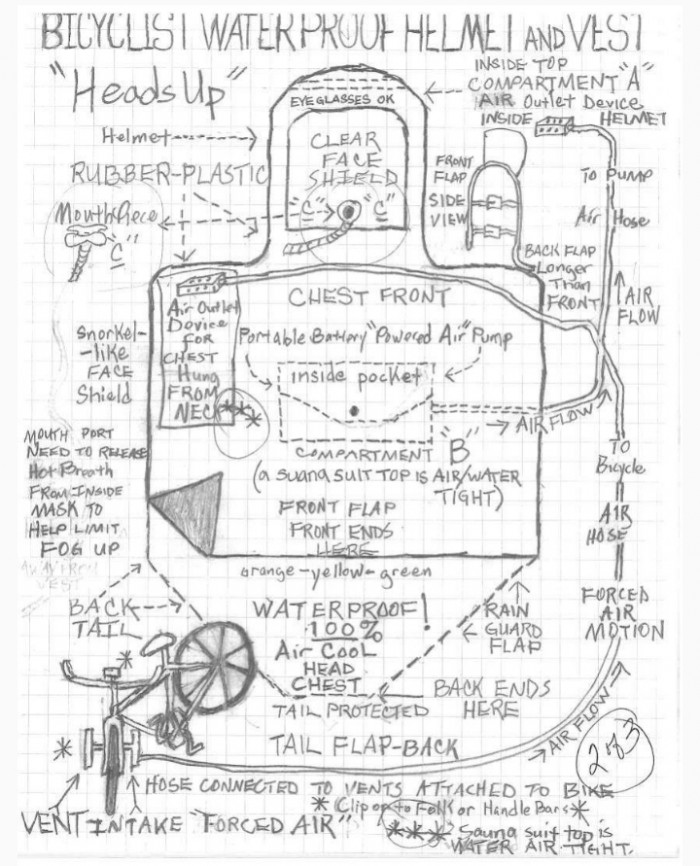 BICYCLIST WATERPROOF HELMET AND VEST
"Heads Up"
INSIDE TOP
COMPARTMENT "A"
AIR Outlet Device
INSIDE HELMET
EYEGLASSES OK
Helmet
CLEAR
FACE
SHIELD
"C" "C"
RUBBER-PLASTIC
Mouth Piece
"C"
FRONT
FLAP
SIDE
VIEW
TO PUMP
Air Hose
BACK FLAP
Longer
Than
FRONT
AIR
FLOW
CHEST FRONT
Air Outlet
Device
FOR
CHEST
Hung
FROM
NECK
***
Snorkel-
-like
FACE
Shield
Portable Battery "Powered Air" Pump
inside pocket
AIR FLOW
COMPARTMENT "B"
(a suana suit TOP is AIR/WATER
TIGHT)
MOUTH PORT
NEED TO RELEASE
Hot Breath
FROM INSIDE
MASK TO
HELP LIMIT
FOG UP
AWAY FROM
VEST
TO
Bicycle
AIR
HOSE
FRONT FLAP
FRONT ENDS
HERE
orange-yellow-green
FORCED
AIR
MOTION
BACK
TAIL
WATERPROOF!
100%
Air Cool
HEAD
CHEST
RAIN
GUARD
FLAP
BACK ENDS
HERE
TAIL PROTECTED
TAIL FLAP-BACK
AIR FLOW
2 of 3
*
*
HOSE CONNECTED TO VENTS ATTACHED TO BIKE
* Clip on to Folks or Handle Bars *
VENT INTAKE "FORCED AIR"
*** Sauna suit top is
WATER AIR TIGHT.